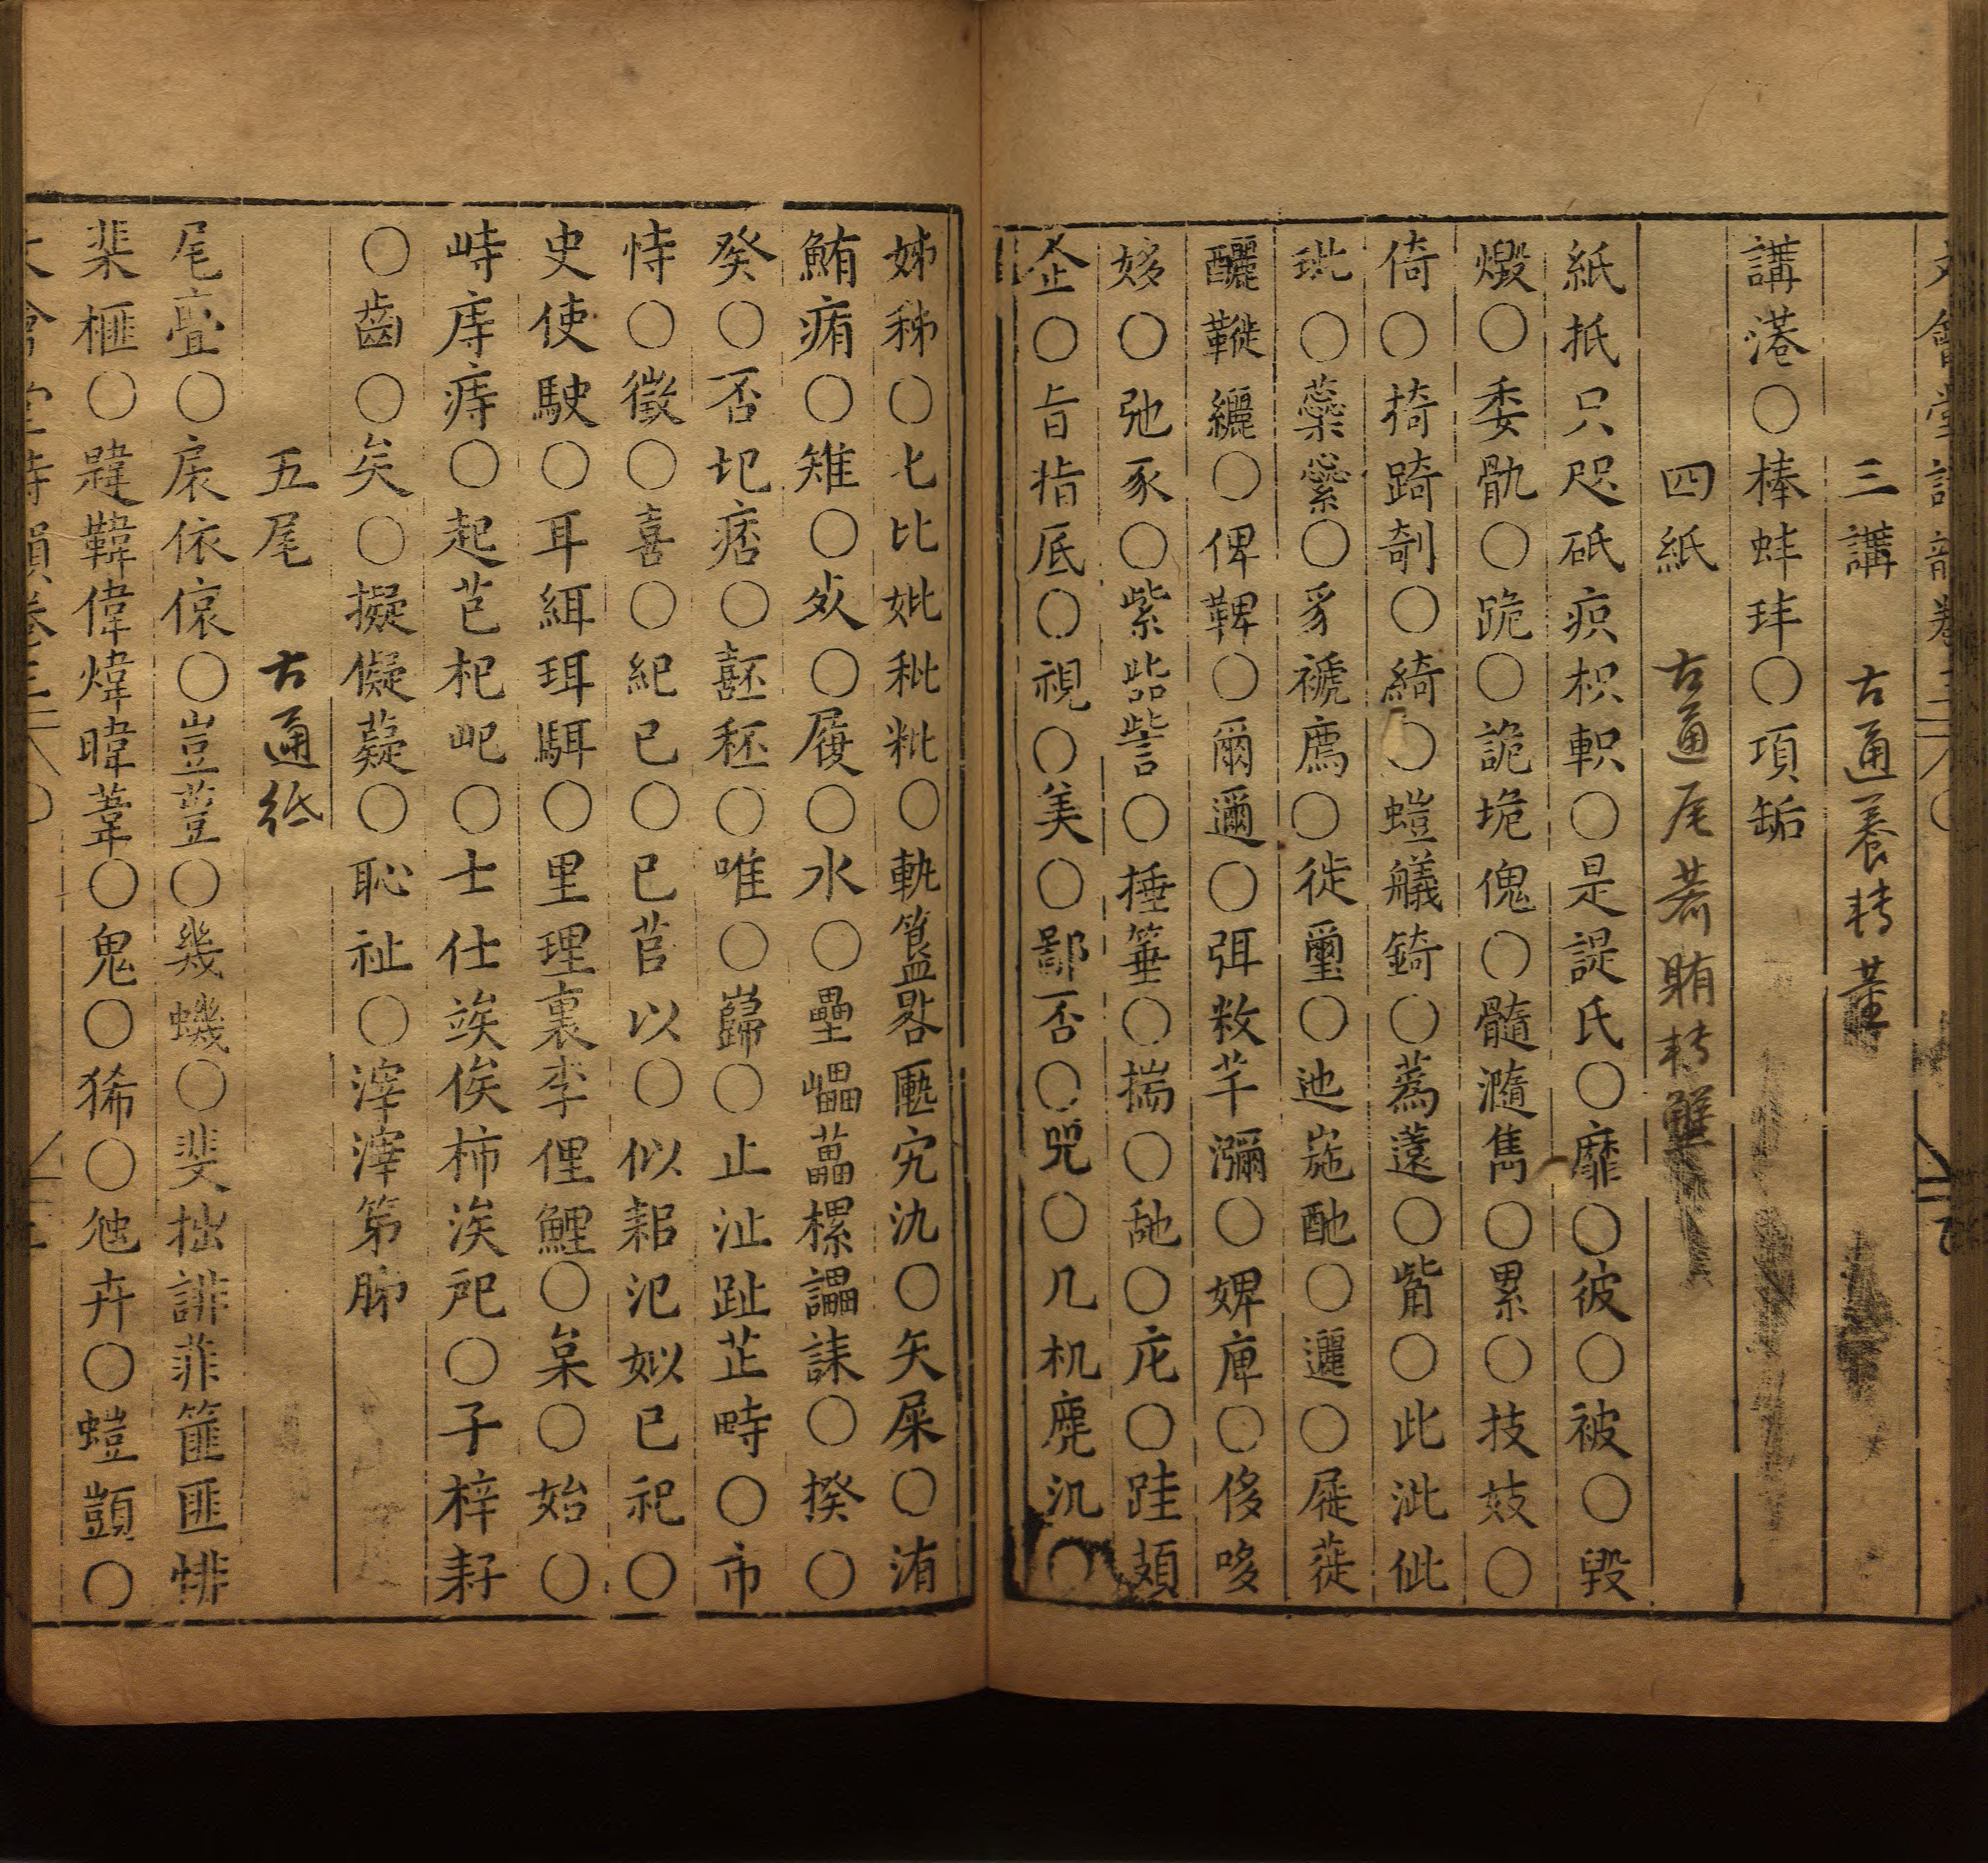 三講 古通養轉董
講港○棒蚌玤○項缿
四紙 古通尾薺賄轉蟹
紙扺只咫砥疻枳軹○是諟氏○靡○彼○被○毀
燬○委骫○跪○詭垝傀○髓瀡雋○累○技妓○
倚○掎踦剞○綺○螘艤錡○蔿薳○觜○此泚佌
玼○蕊繠○豸褫廌○徙璽○迆崺酏○邐○屣蓰
釃韉纚○俾鞞○爾邇○弭敉芈瀰○婢庳○侈哆
姼○弛豕○紫訿訾○捶箠○揣○舓○庀○跬頍
企○旨指厎○視○美○鄙否○兕○几机麂氿○
姊秭○匕比妣秕粃○軌簋晷匭宄氿○矢屎○洧
鮪痏○雉○○履○水○壘藟樏讄誄○揆○
癸○否圮痞○嚭秠○唯○巋○止沚趾芷畤○市
恃○徵○喜○紀已○已苢以○似耜汜姒巳祀○
史使駛○耳緷珥駬○里理裏李俚鯉○枲○始○
峙庤痔○起芑杞屺○士仕竢俟柿涘戺○子梓耔
○齒○矣○擬儗薿○恥祉○滓第胏
五尾 古通紙
尾亹○扆依偯○豈○幾蟣○斐朏誹菲篚匪悱
棐榧○韙韡偉煒暐葦○鬼○豨○虺卉○螘顗○